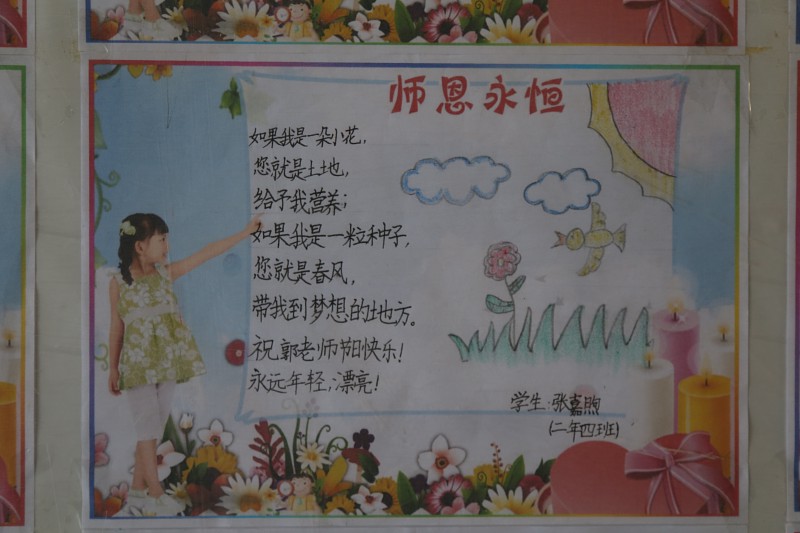 师恩永恒
如果我是一朵小花，
您就是土地，
给予我营养；
如果我是一粒种子，
您就是春风，
带我到梦想的地方。
祝郭老师节日快乐！
永远年轻，漂亮！
学生：张嘉煦
（二年四班）